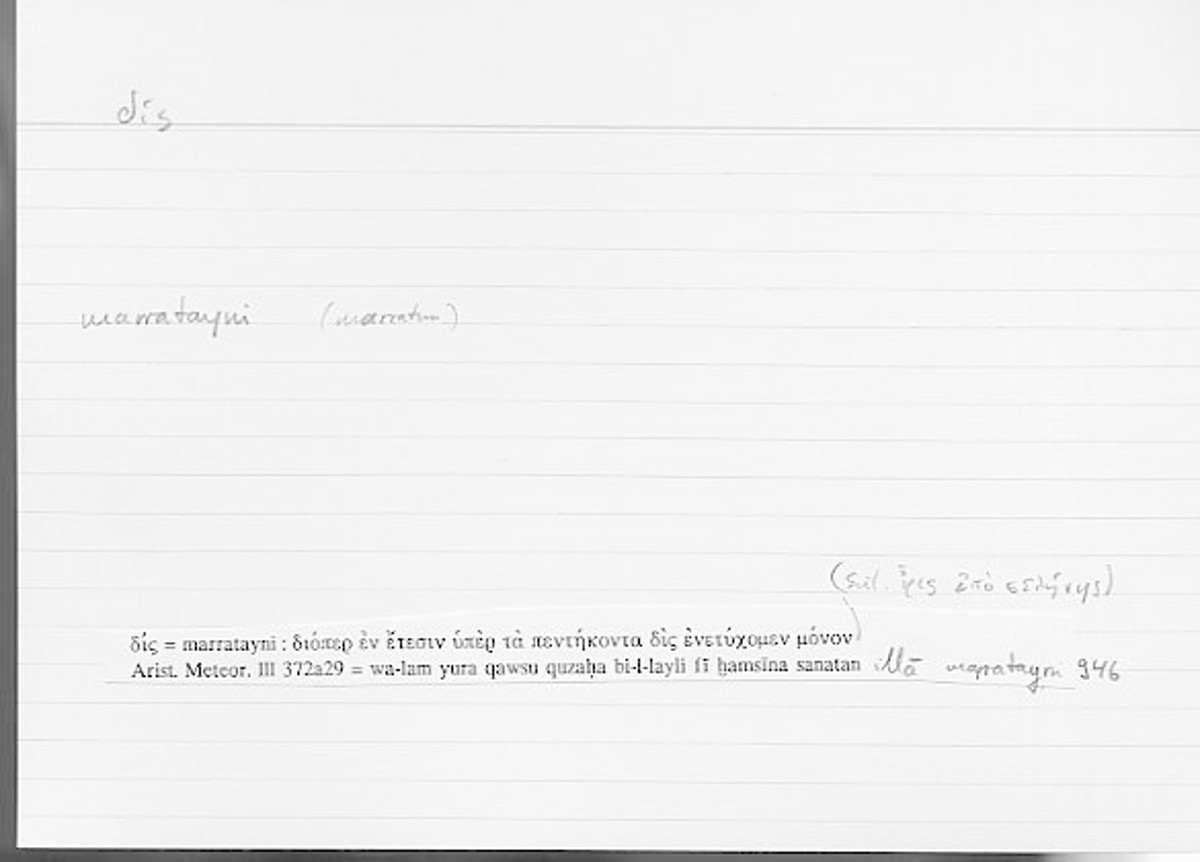 δίς
marratayni (marratun)
(scil. ἶρις ἀπὸ σελήνης)
δίς = marratayni : διόπερ ἐν ἔτεσιν ὑπὲρ τὰ πεντήκοντα δὶς ἐνετύχομεν μόνον
Arist. Meteor. III 372a29 = wa-lam yura qawsu quzaḥa bi-l-layli fī ḫamsīna sanatan illā marratayni 946